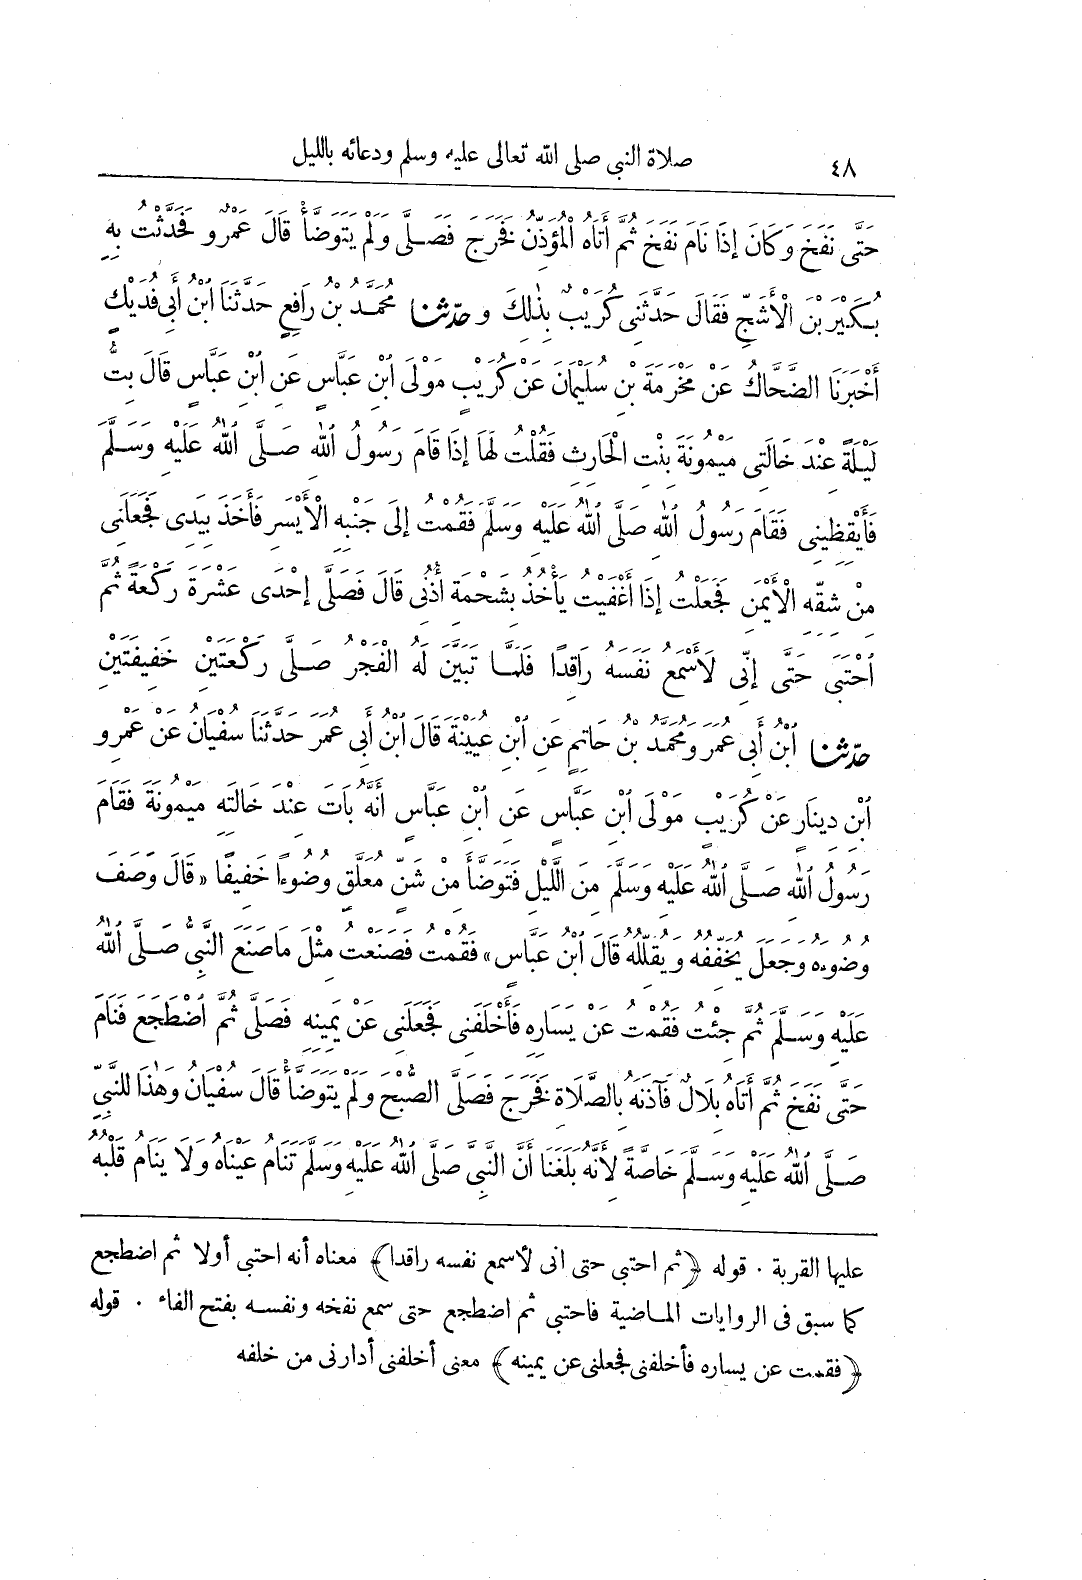 ٤٨ صلاة النبى صلى الله تعالى عليه وسلم ودعائه بالليل
حَتَّى نَفَخَ وَكَانَ إِذَا نَامَ نَفَخَ ثُمَّ أَتَاهُ الْمُؤَذِّنُ فَخَرَجَ فَصَلَّى وَلَمْ يَتَوَضَّأْ قَالَ عَمْرٌو فَحَدَّثْتُ بِهِ
بُكَيْرَ بْنَ الْأَشَجِّ فَقَالَ حَدَّثَنِى كُرَيْبٌ بِذٰلِكَ و حدّثنا مُحَمَّدُ بْنُ رَافِعٍ حَدَّثَنَا ابْنُ أَبِى فُدَيْكٍ
أَخْبَرَنَا الضَّحَّاكُ عَنْ مَخْرَمَةَ بْنِ سُلَيْمَانَ عَنْ كُرَيْبٍ مَوْلَى ابْنِ عَبَّاسٍ عَنِ ابْنِ عَبَّاسٍ قَالَ بِتُّ
لَيْلَةً عِنْدَ خَالَتِى مَيْمُونَةَ بِنْتِ الْحَارِثِ فَقُلْتُ لَهَا إِذَا قَامَ رَسُولُ اللهِ صَلَّى اللهُ عَلَيْهِ وَسَلَّمَ
فَأَيْقِظِينِى فَقَامَ رَسُولُ اللهِ صَلَّى اللهُ عَلَيْهِ وَسَلَّمَ فَقُمْتُ إِلَى جَنْبِهِ الْأَيْسَرِ فَأَخَذَ بِيَدِى فَجَعَلَنِى
مِنْ شِقِّهِ الْأَيْمَنِ فَجَعَلْتُ إِذَا أَغْفَيْتُ يَأْخُذُ بِشَحْمَةِ أُذُنِى قَالَ فَصَلَّى إِحْدَى عَشْرَةَ رَكْعَةً ثُمَّ
احْتَبَى حَتَّى إِنِّى لَأَسْمَعُ نَفَسَهُ رَاقِدًا فَلَمَّا تَبَيَّنَ لَهُ الْفَجْرُ صَلَّى رَكْعَتَيْنِ خَفِيفَتَيْنِ
حدّثنا ابْنُ أَبِى عُمَرَ وَمُحَمَّدُ بْنُ حَاتِمٍ عَنِ ابْنِ عُيَيْنَةَ قَالَ ابْنُ أَبِى عُمَرَ حَدَّثَنَا سُفْيَانُ عَنْ عَمْرِو
ابْنِ دِينَارٍ عَنْ كُرَيْبٍ مَوْلَى ابْنِ عَبَّاسٍ عَنِ ابْنِ عَبَّاسٍ أَنَّهُ بَاتَ عِنْدَ خَالَتِهِ مَيْمُونَةَ فَقَامَ
رَسُولُ اللهِ صَلَّى اللهُ عَلَيْهِ وَسَلَّمَ مِنَ اللَّيْلِ فَتَوَضَّأَ مِنْ شَنٍّ مُعَلَّقٍ وُضُوءًا خَفِيفًا «قَالَ وَصَفَ
وُضُوءَهُ وَجَعَلَ يُخَفِّفُهُ وَيُقَلِّلُهُ قَالَ ابْنُ عَبَّاسٍ» فَقُمْتُ فَصَنَعْتُ مِثْلَ مَا صَنَعَ النَّبِىُّ صَلَّى اللهُ
عَلَيْهِ وَسَلَّمَ ثُمَّ جِئْتُ فَقُمْتُ عَنْ يَسَارِهِ فَأَخْلَفَنِى فَجَعَلَنِى عَنْ يَمِينِهِ فَصَلَّى ثُمَّ اضْطَجَعَ فَنَامَ
حَتَّى نَفَخَ ثُمَّ أَتَاهُ بِلَالٌ فَآذَنَهُ بِالصَّلَاةِ فَخَرَجَ فَصَلَّى الصُّبْحَ وَلَمْ يَتَوَضَّأْ قَالَ سُفْيَانُ وَهٰذَا لِلنَّبِىِّ
صَلَّى اللهُ عَلَيْهِ وَسَلَّمَ خَاصَّةً لِأَنَّهُ بَلَغَنَا أَنَّ النَّبِىَّ صَلَّى اللهُ عَلَيْهِ وَسَلَّمَ تَنَامُ عَيْنَاهُ وَلَا يَنَامُ قَلْبُهُ
عليها القربة . قوله ﴿ثم احتبى حتى انى لأسمع نفسه راقدا﴾ معناه أنه احتبى أولا ثم اضطجع
كما سبق فى الروايات الماضية فاحتبى ثم اضطجع حتى سمع نفخه ونفسه بفتح الفاء . قوله
﴿فقمت عن يساره فأخلفنى فجعلنى عن يمينه﴾ معنى أخلفنى أدارنى من خلفه